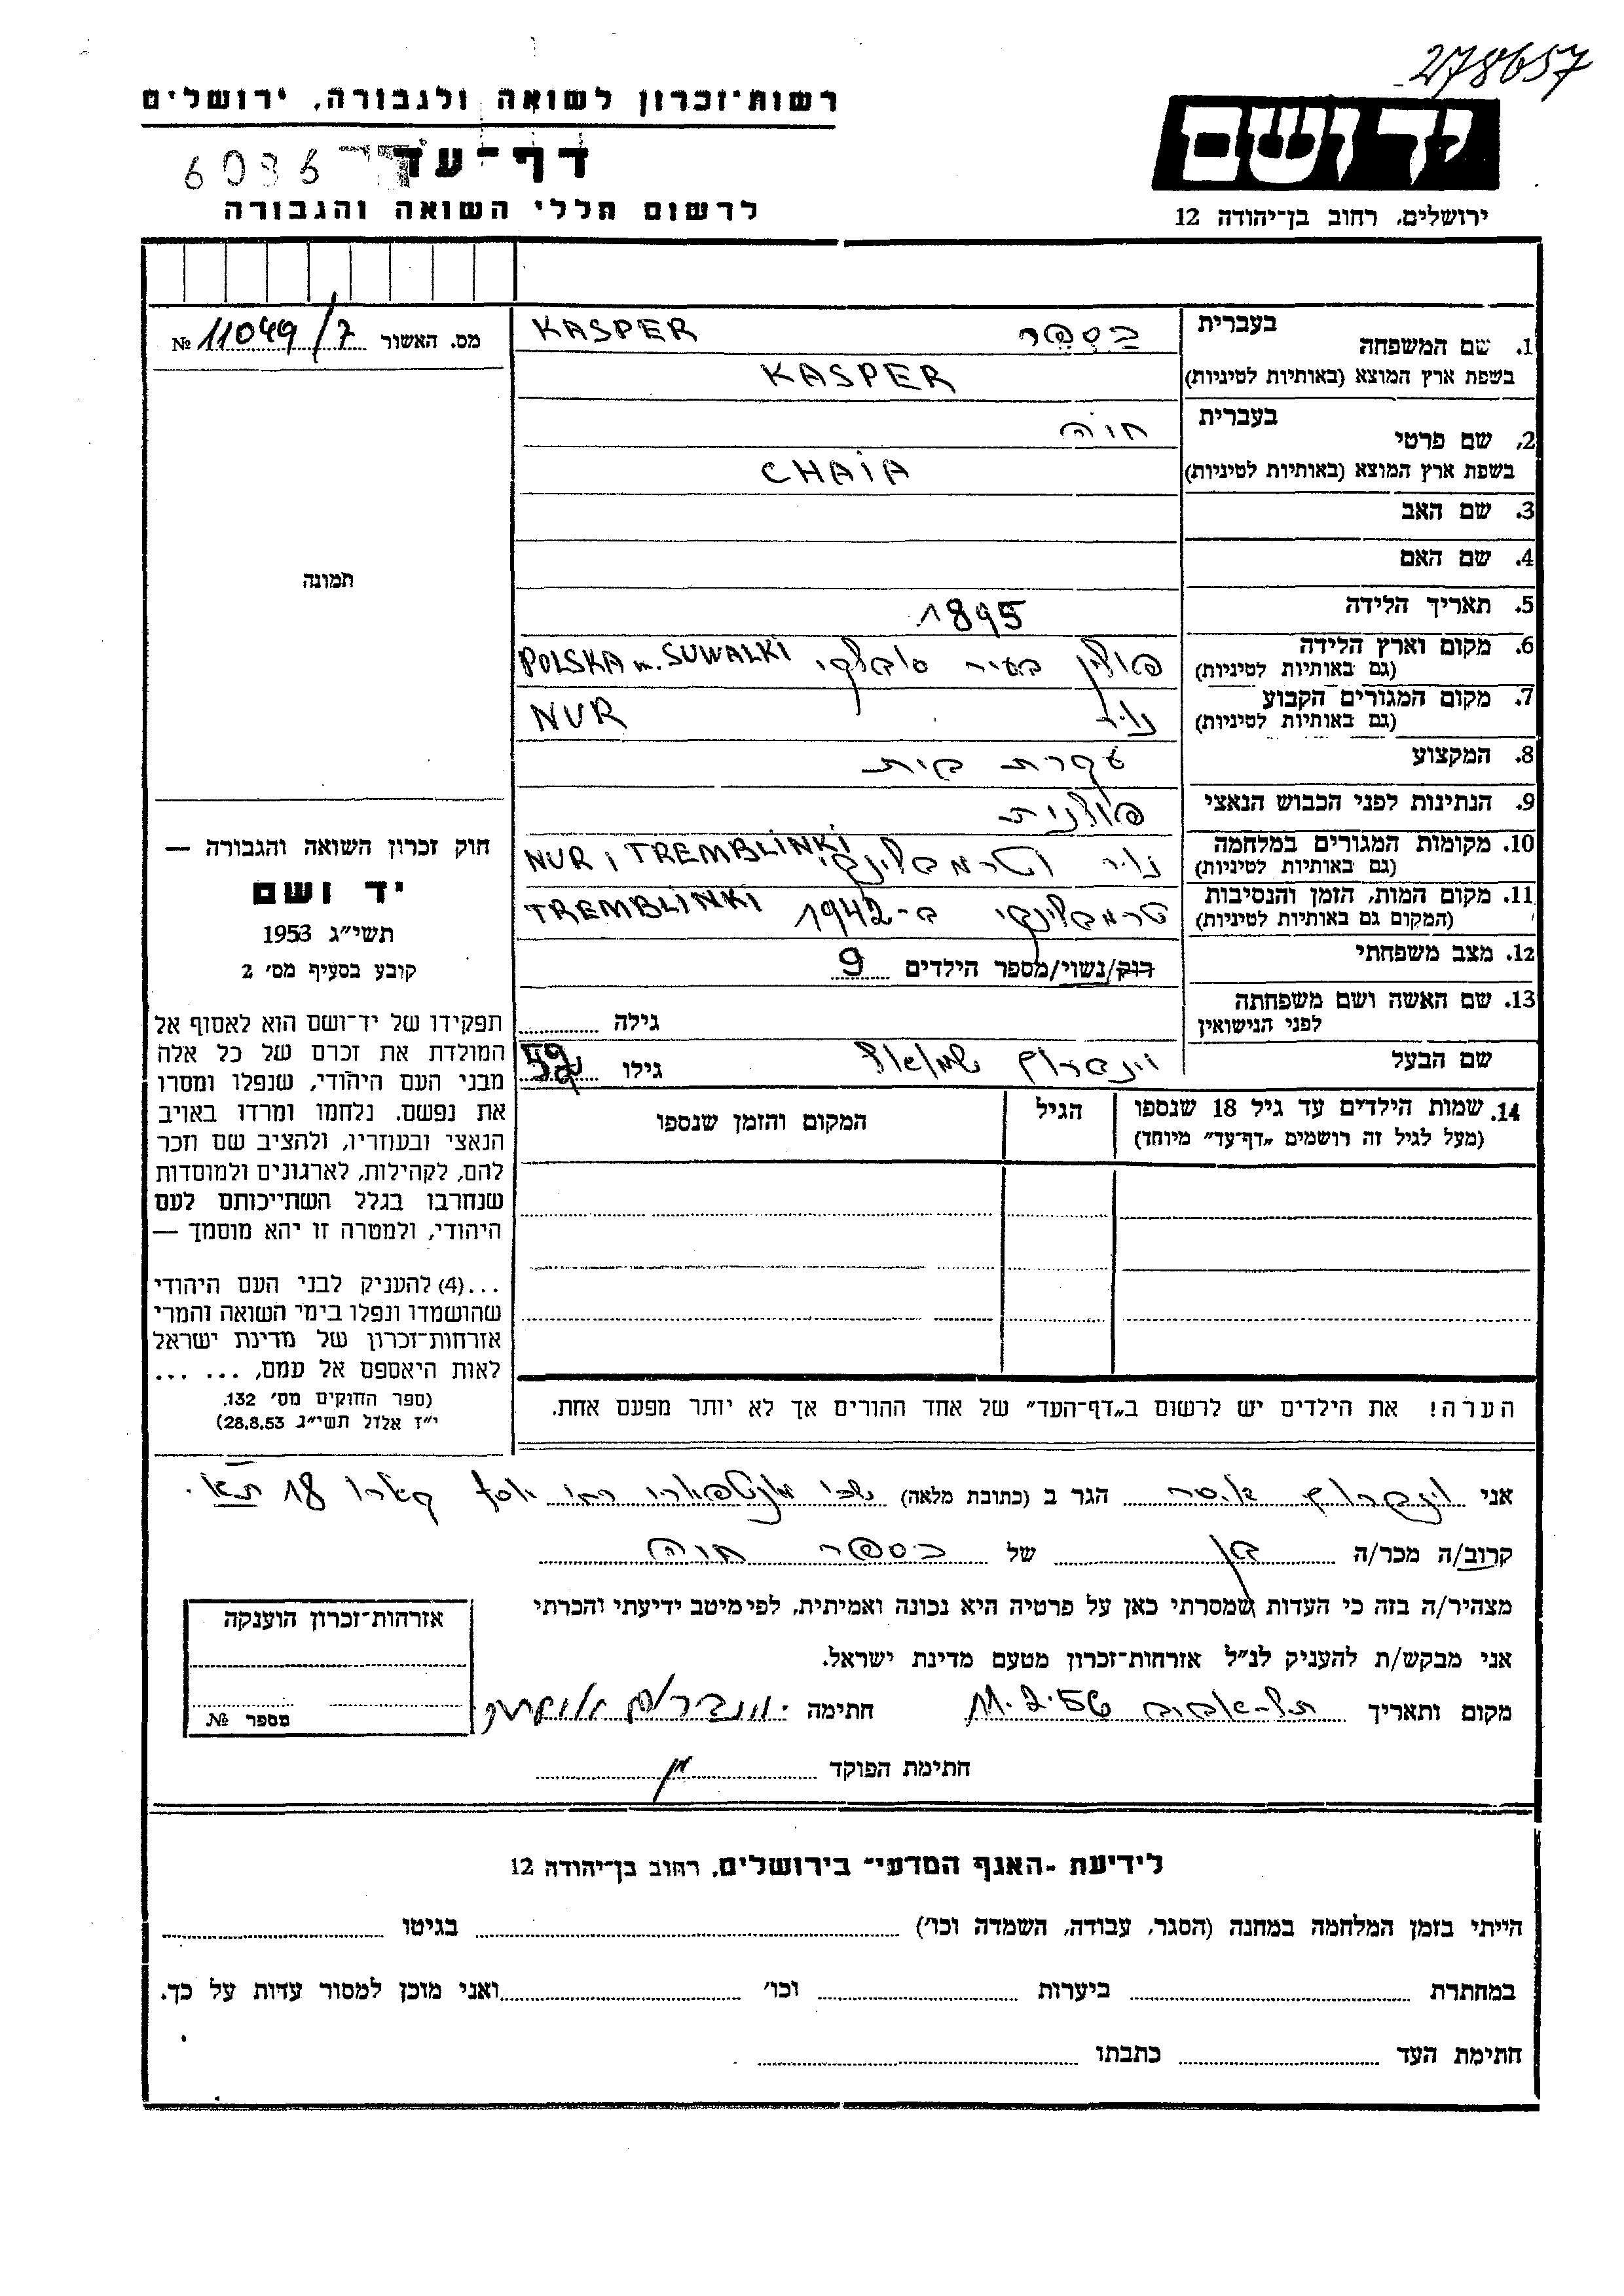 278657
רשות־זכרון לשואה ולגבורה, ירושלים
יד ושם
דף־עד
6036
לרשום חללי השואה והגבורה
ירושלים, רחוב בן־יהודה 12
מס. האשור № 11049/7
1. שם המשפחה בעברית כספר KASPER
בשפת ארץ המוצא (באותיות לטיניות) KASPER
2. שם פרטי בעברית חיה
בשפת ארץ המוצא (באותיות לטיניות) CHAIA
3. שם האב
4. שם האם
5. תאריך הלידה 1895
6. מקום וארץ הלידה (גם באותיות לטיניות) פולין בעיר סובלקי POLSKA m. SUWALKI
7. מקום המגורים הקבוע (גם באותיות לטיניות) נור NUR
8. המקצוע עקרת בית
9. הנתינות לפני הכבוש הנאצי פולנית
10. מקומות המגורים במלחמה (גם באותיות לטיניות) נור וטרמבלינקי NUR i TREMBLINKI
11. מקום המות, הזמן והנסיבות (המקום גם באותיות לטיניות) טרמבלינקי ב־1942 TREMBLINKI
12. מצב משפחתי רוק/נשוי/מספר הילדים 9
13. שם האשה ושם משפחתה לפני הנישואין גילה
שם הבעל וינגרום שמואל גילו 52
14. שמות הילדים עד גיל 18 שנספו הגיל המקום והזמן שנספו
(מעל לגיל זה רושמים „דף־עד” מיוחד)
הערה! את הילדים יש לרשום ב„דף־העד” של אחד ההורים אך לא יותר מפעם אחת.
תמונה
חוק זכרון השואה והגבורה —
יד ושם
תשי״ג 1953
קובע בסעיף מס׳ 2
תפקידו של יד־ושם הוא לאסוף אל
המולדת את זכרם של כל אלה
מבני העם היהודי, שנפלו ומסרו
את נפשם. נלחמו ומרדו באויב
הנאצי ובעוזריו, ולהציב שם וזכר
להם, לקהילות, לארגונים ולמוסדות
שנחרבו בגלל השתייכותם לעם
היהודי, ולמטרה זו יהא מוסמך —
...(4) להעניק לבני העם היהודי
שהושמדו ונפלו בימי השואה והמרי
אזרחות־זכרון של מדינת ישראל
לאות היאספם אל עמם, ... ...
(ספר החוקים מס׳ 132,
י״ז אלול תשי״ג 28.8.53)
אני וינגרום איסר הגר ב (כתובת מלאה) שכ׳ מונטפיורי רח׳ יוסף קארו 18 תא.
קרוב/ה מכר/ה בן של כספר חיה
מצהיר/ה בזה כי העדות שמסרתי כאן על פרטיה היא נכונה ואמיתית, לפי מיטב ידיעתי והכרתי
אני מבקש/ת להעניק לנ״ל אזרחות־זכרון מטעם מדינת ישראל.
מקום ותאריך תל־אביב 11.2.56 חתימה
חתימת הפוקד
אזרחות־זכרון הוענקה
מספר №
לידיעת ־האגף המדעי־ בירושלים, רחוב בן־יהודה 12
הייתי בזמן המלחמה במחנה (הסגר, עבודה, השמדה וכו׳) בגיטו
במחתרת ביערות וכו׳ ואני מוכן למסור עדות על כך.
חתימת העד כתבתו